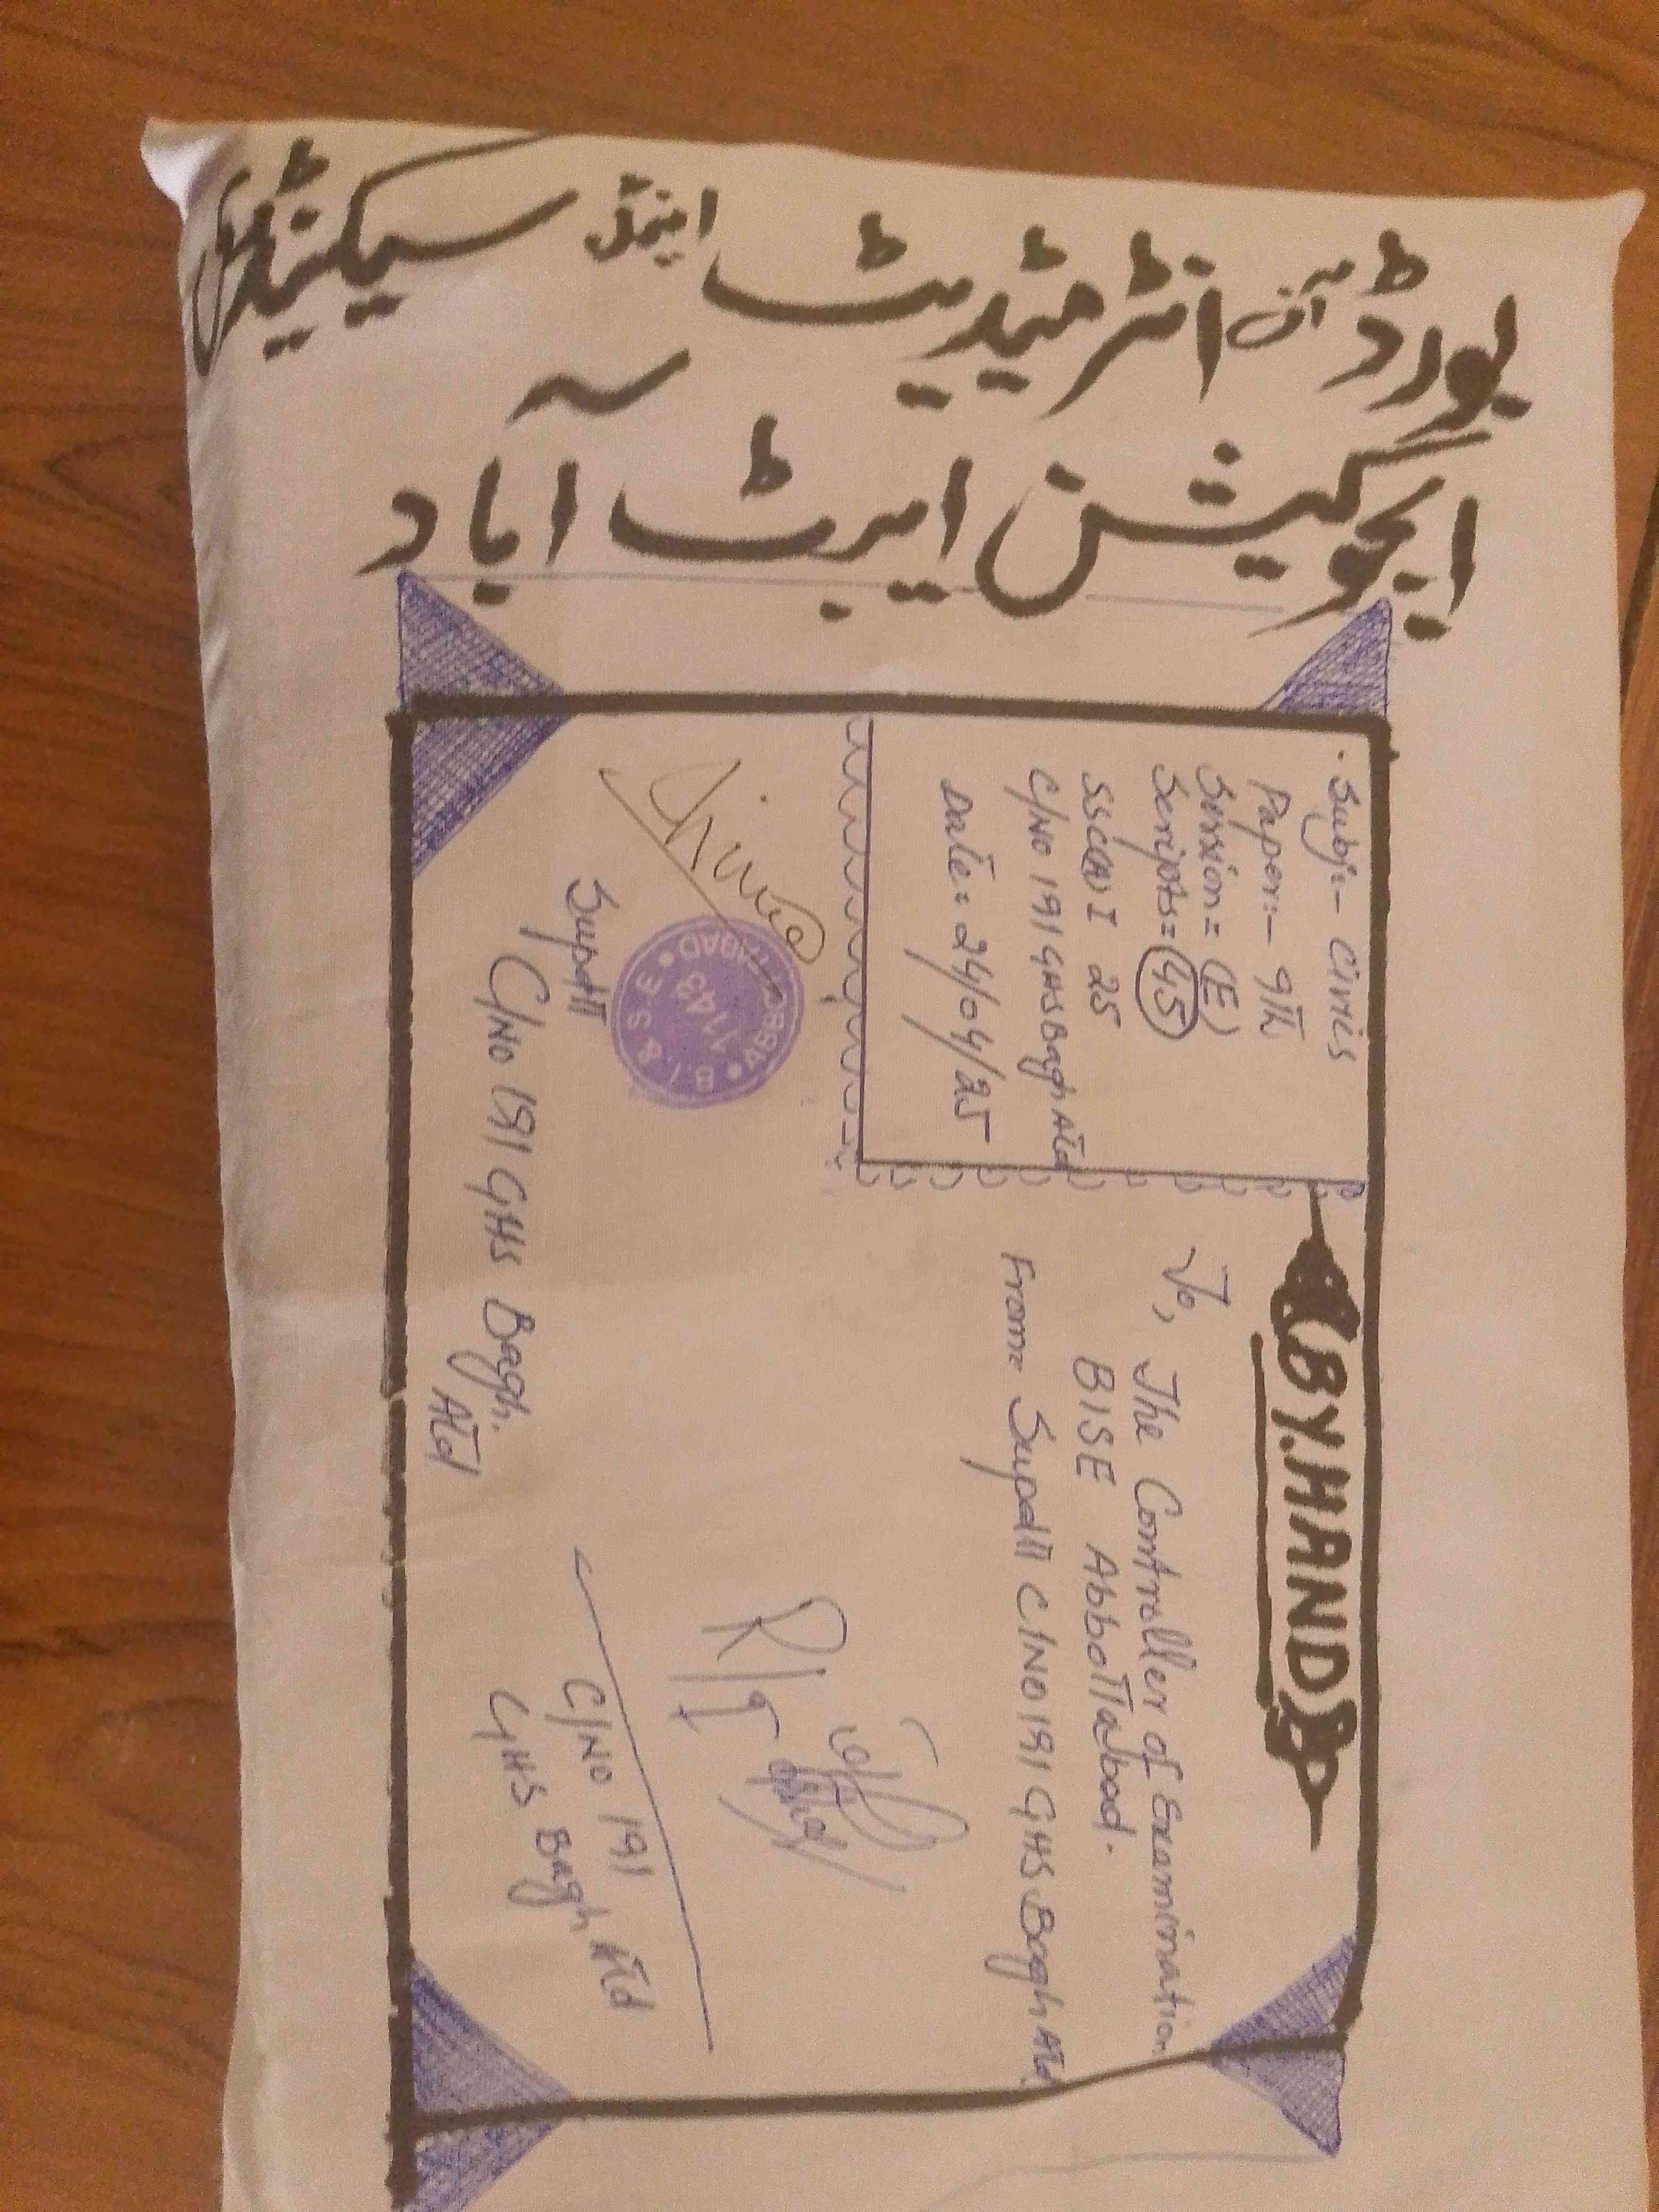 بورڈ آف انٹرمیڈیٹ اینڈ سیکینڈری
ایجوکیشن ایبٹ آباد
Subj:- Civis
Paper:- 9th
Session= (E)
Scripts= 45
SSC(A) I 25
C/NO 191 GHS Bagh Atd
Date= 24/04/25
BY.HAND
To, The Controller of Examination
BISE Abbottabad.
From= Supdtt C/NO 191 GHS Bagh Atd
B.I. & S.E. ABBOTTABAD
1143
Supdtt
C/NO 191 GHS Bagh.
Atd
C/NO 191
GHS Bagh Atd